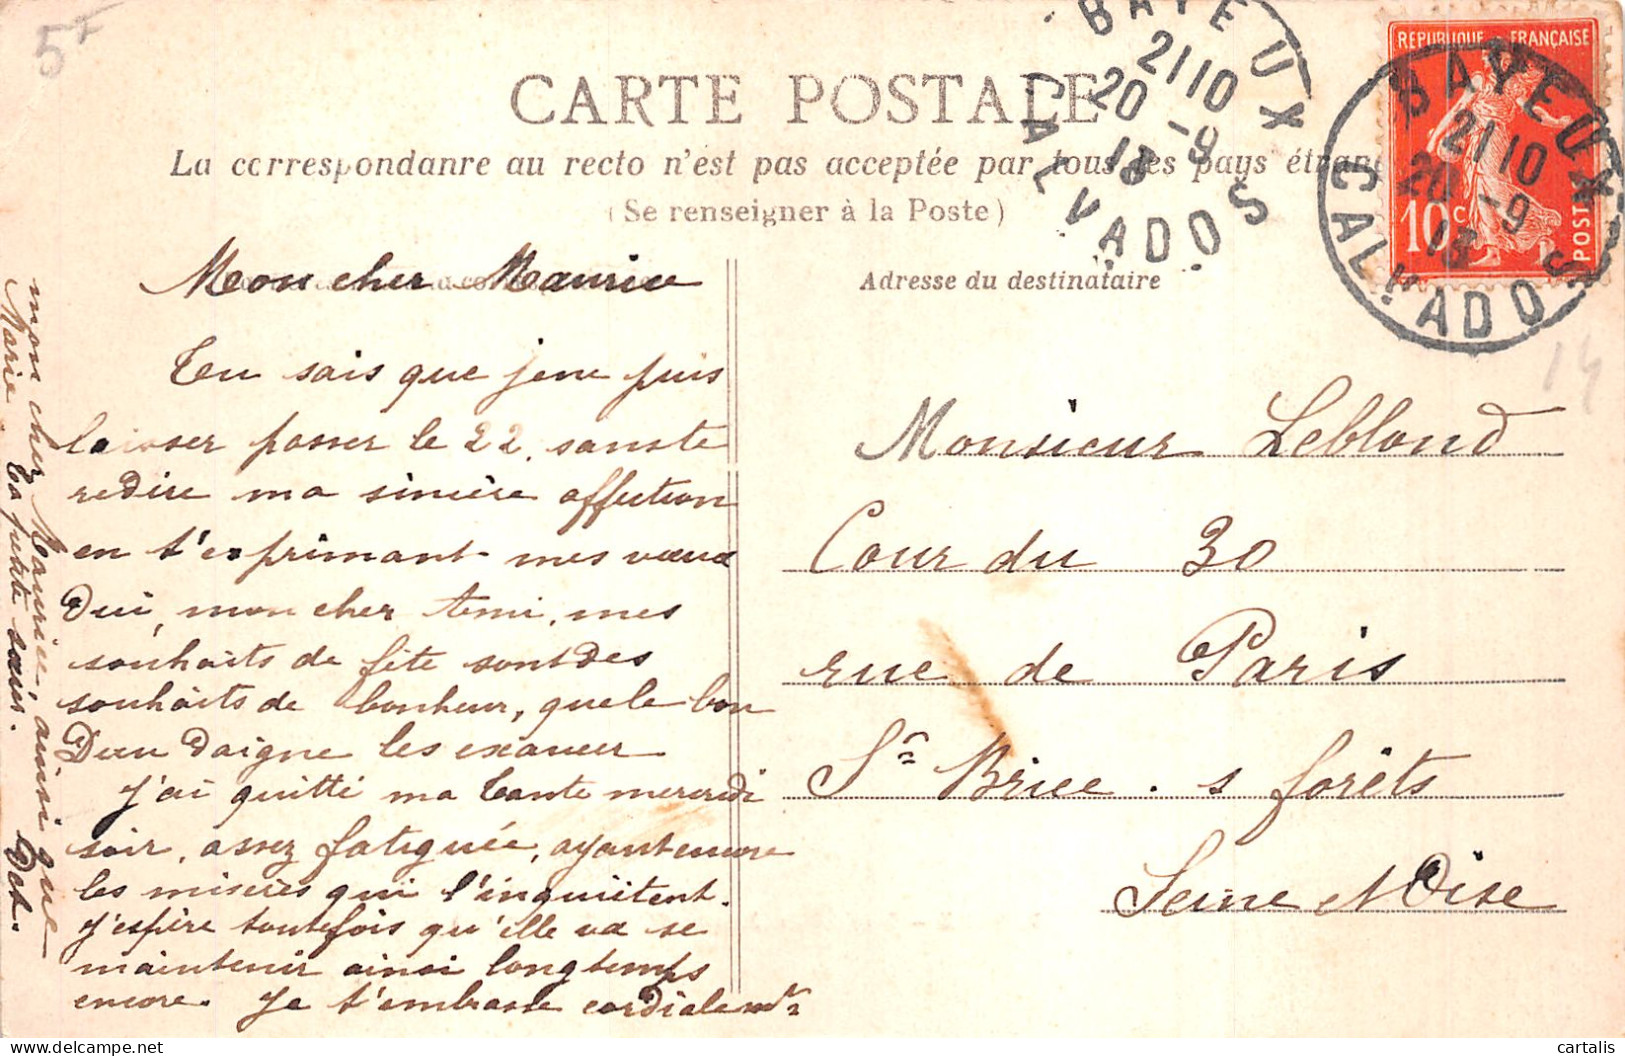 5F
CARTE POSTALE
La correspondanre au recto n'est pas acceptée par tous les pays étran
(Se renseigner à la Poste)
BAYEUX
21 10
20 -9
13
CALVADOS
REPUBLIQUE FRANÇAISE
10c
POSTES
BAYEUX
21 10
20 -9
13
CALVADOS
14
Mon cher Maurice
Tu sais que je ne puis
laisser passer le 22, sans te
redire ma sincère affection
en t'exprimant mes vœux
Oui, mon cher Ami, mes
souhaits de fête sont des
souhaits de bonheur, que le bon
Dieu daigne les exaucer
J'ai quitté ma tante mercredi
soir, assez fatiguée, ayant encore
les misères qui l'inquiètent.
J'espère toutefois qu'elle va se
maintenir ainsi longtemps
encore. Je t'embrasse cordialemt
mon cher Maurice ainsi que
Marie
Ta petite sœur.
Adresse du destinataire
Monsieur Leblond
Cour du 30
rue de Paris
St Brice . s forêts
Seine et Oise
cartalis